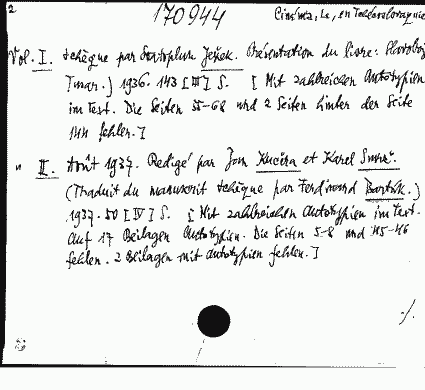 2 170944 Cinéma, Le, en Tchécoslovaquie
Vol. I. tchèque par Svatopluk Ježek. Présentation du livre: Slavoboj
Tusar.) 1936. 143 [III] S. [Mit zahlreichen Autotypien
im Text. Die Seiten 55-68 und 2 Seiten hinter der Seite
144 fehlen.]
" II. Août 1937. Redigé par Jan Kučera et Karel Smrž.
(Traduit du manuscrit tchèque par Ferdinand Bartík.)
1937. 50 [IV] S. [Mit zahlreichen Autotypien im Text.
Auf 17 Beilagen Autotypien. Die Seiten 5-8 und 45-46
fehlen. 2 Beilagen mit Autotypien fehlen.]
./.